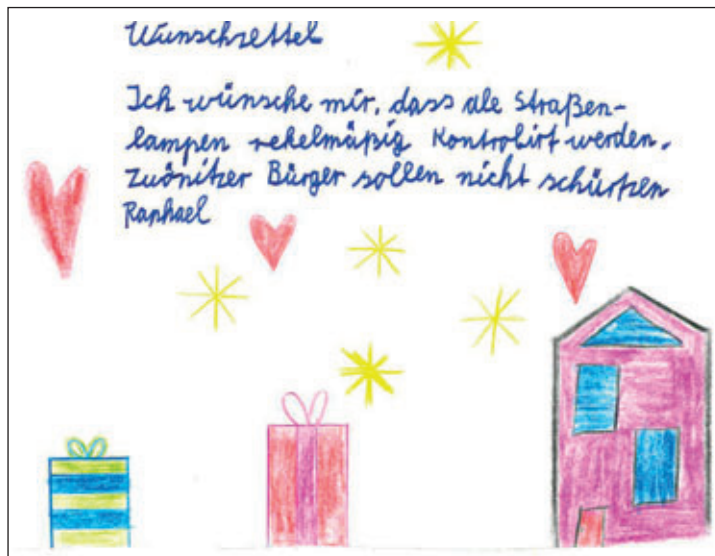 Wunschzettel
Ich wünsche mir, dass ale Straßen-
lampen rekelmäßig Kontrolirt werden.
Zwönitzer Bürger sollen nicht schürtzen
Raphael